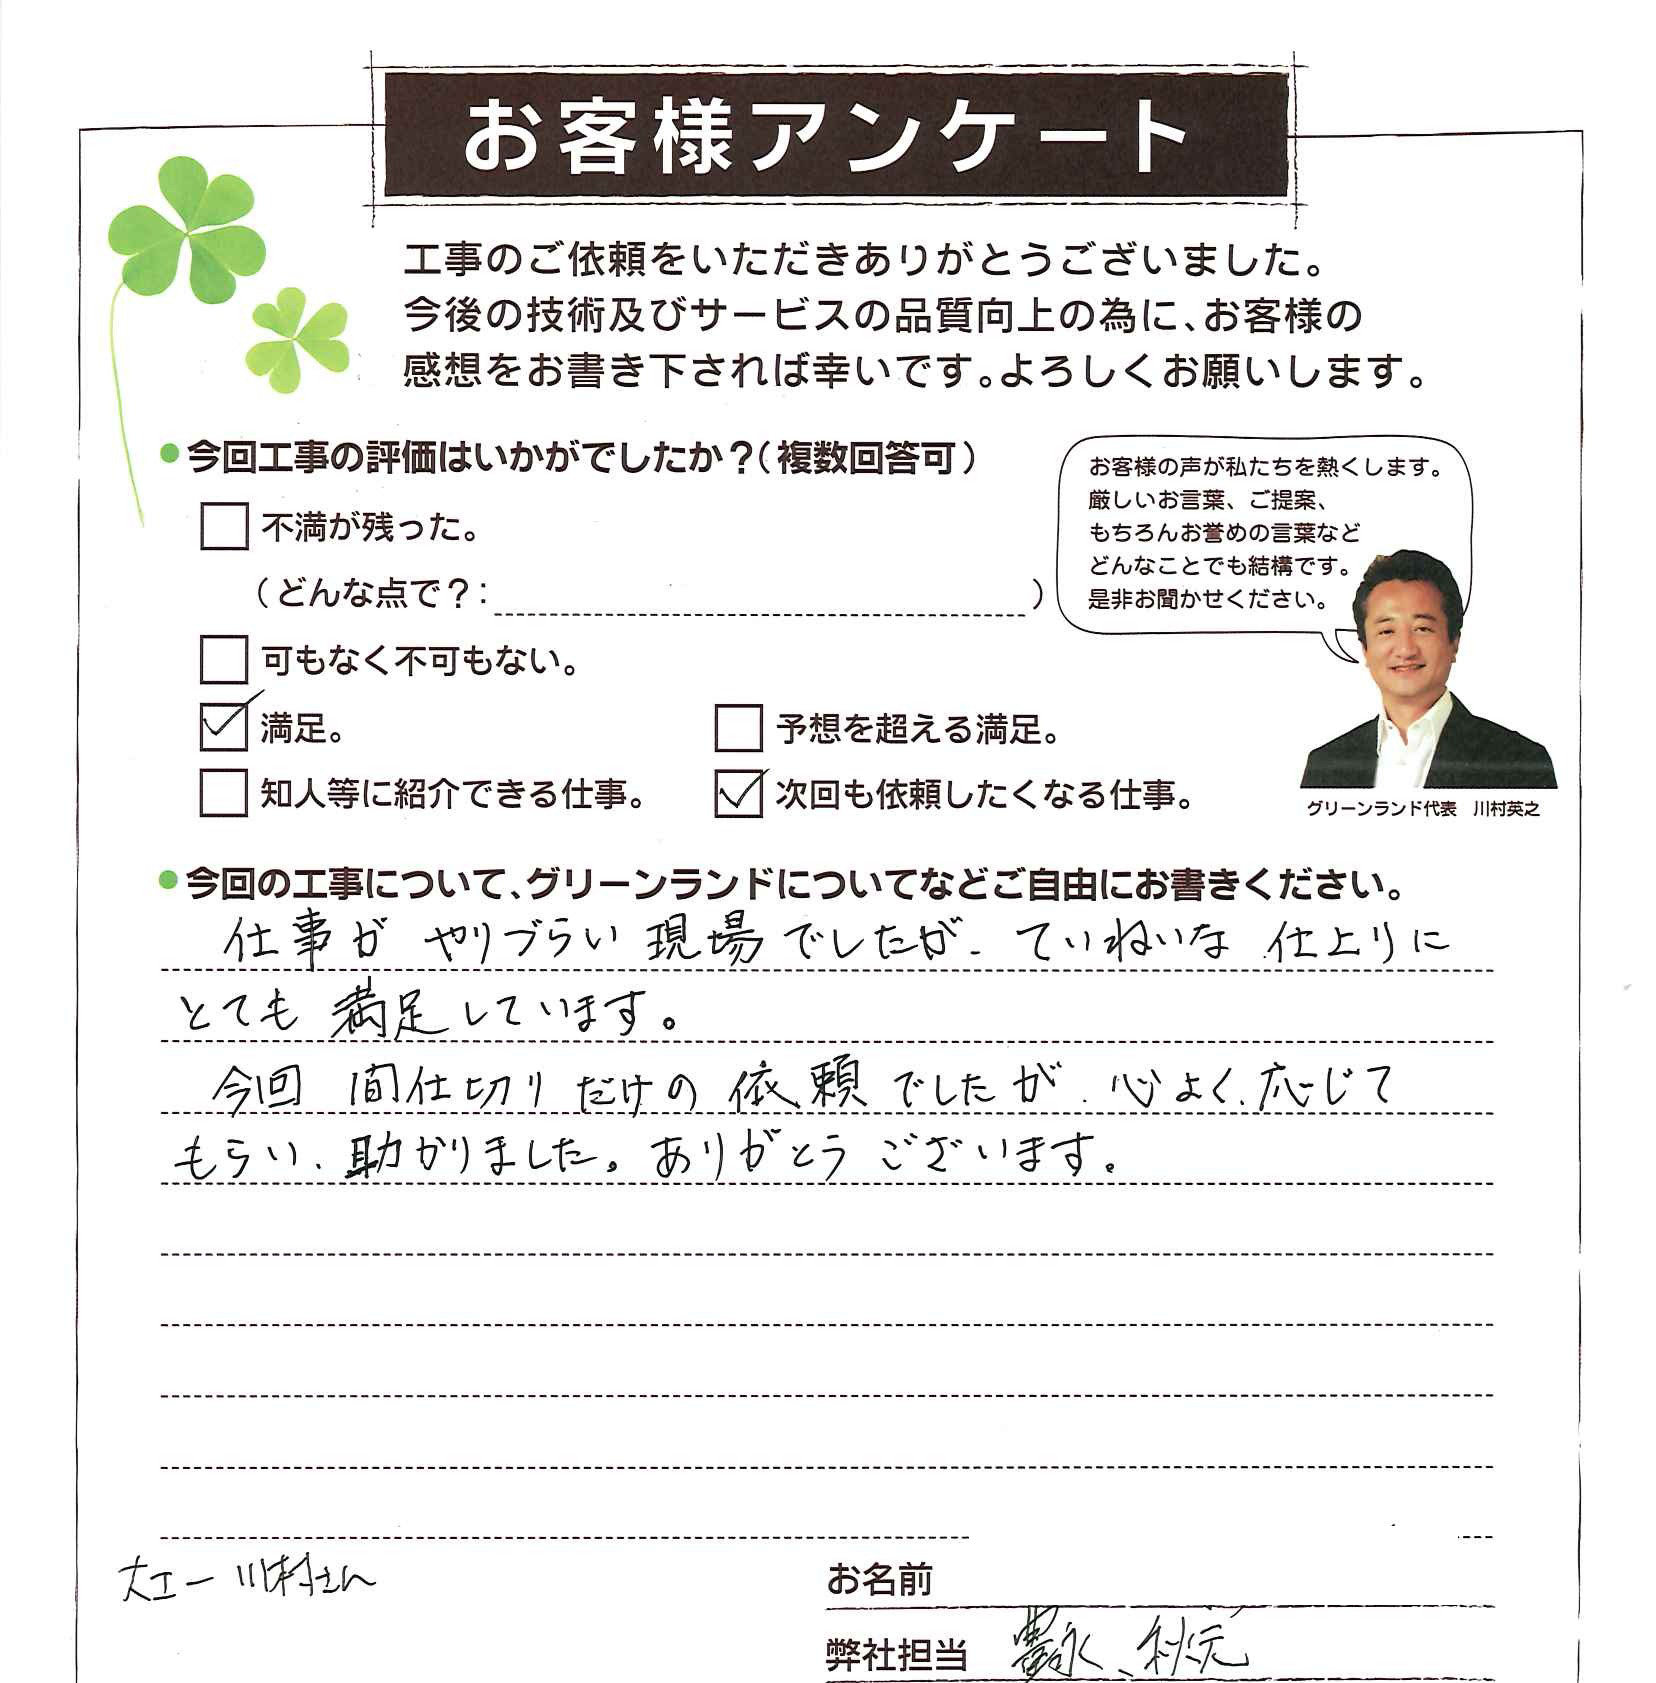 お客様アンケート
工事のご依頼をいただきありがとうございました。
今後の技術及びサービスの品質向上の為に、お客様の
感想をお書き下されば幸いです。よろしくお願いします。
●今回工事の評価はいかがでしたか？（複数回答可）
不満が残った。
（どんな点で？： ）
可もなく不可もない。
満足。
予想を超える満足。
知人等に紹介できる仕事。
次回も依頼したくなる仕事。
お客様の声が私たちを熱くします。
厳しいお言葉、ご提案、
もちろんお誉めの言葉など
どんなことでも結構です。
是非お聞かせください。
グリーンランド代表　川村英之
●今回の工事について、グリーンランドについてなどご自由にお書きください。
仕事が やりづらい 現場 でしたが、ていねいな 仕上りに
とても 満足しています。
今回 間仕切り だけの 依頼 でしたが、心よく、応じて
もらい、助かりました。ありがとう ございます。
大工ー 川村さん
お名前
弊社担当 豊永、秋元